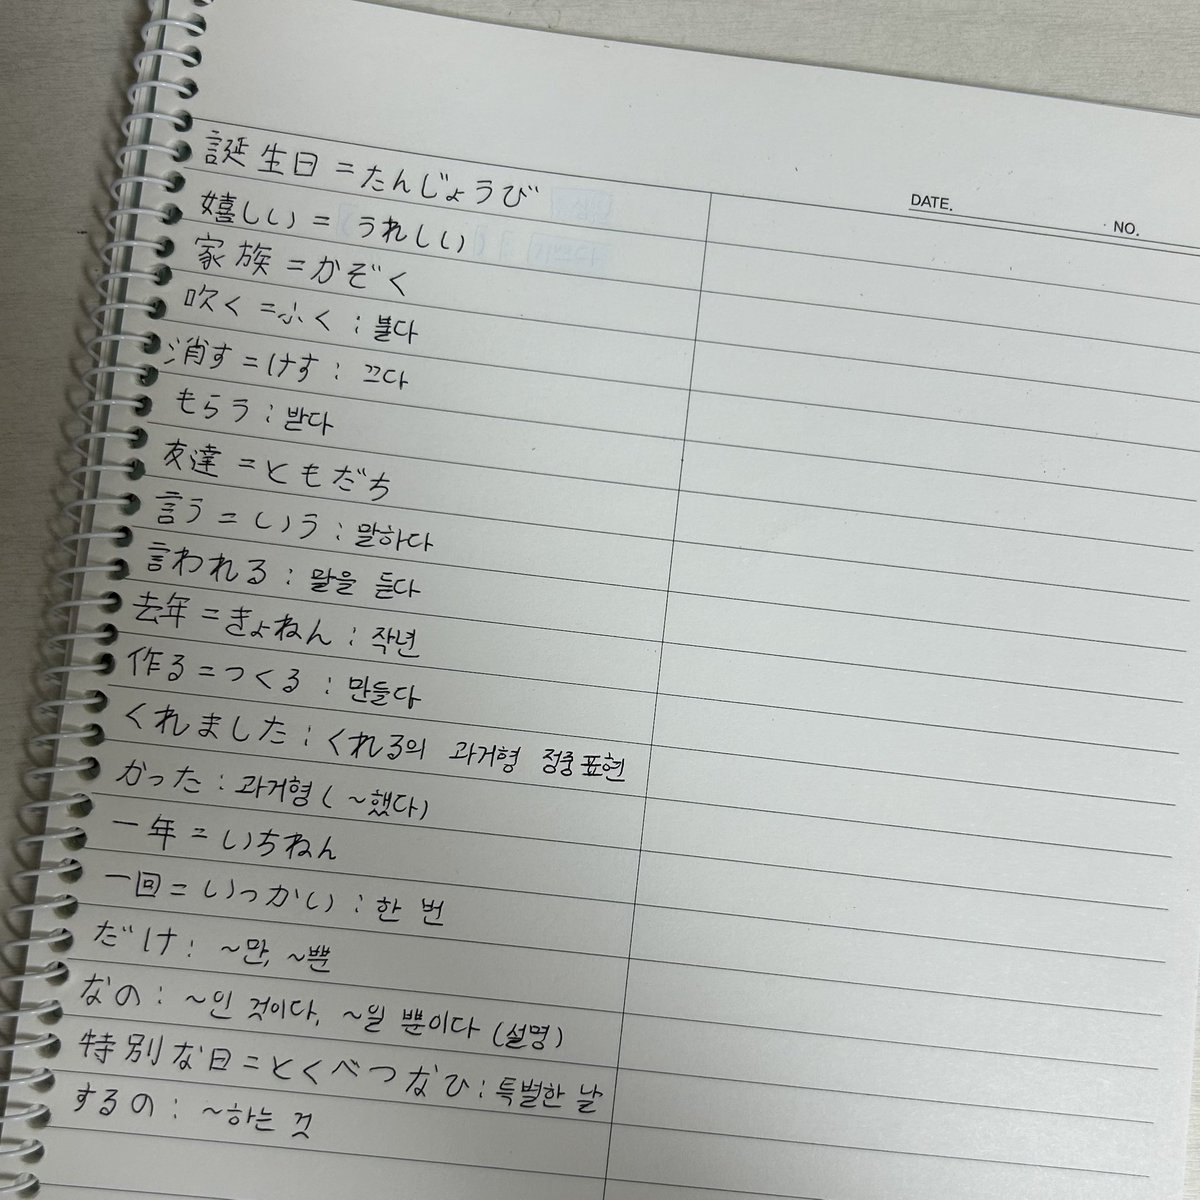 DATE.
NO.
誕生日 = たんじょうび
嬉しい = (うれしい)
家族 = かぞく
吹く = ふく : 불다
消す = けす : 끄다
もらう : 받다
友達 = ともだち
言う = いう : 말하다
言われる : 말을 듣다
去年 = きょねん : 작년
作る = つくる : 만들다
くれました : くれる의 과거형 정중 표현
かった : 과거형 ( ~했다)
一年 = いちねん
一回 = いっかい : 한 번
だけ : ~만, ~뿐
なの : ~인 것이다, ~일 뿐이다 (설명)
特別な日 = とくべつなひ : 특별한 날
するの : ~하는 것